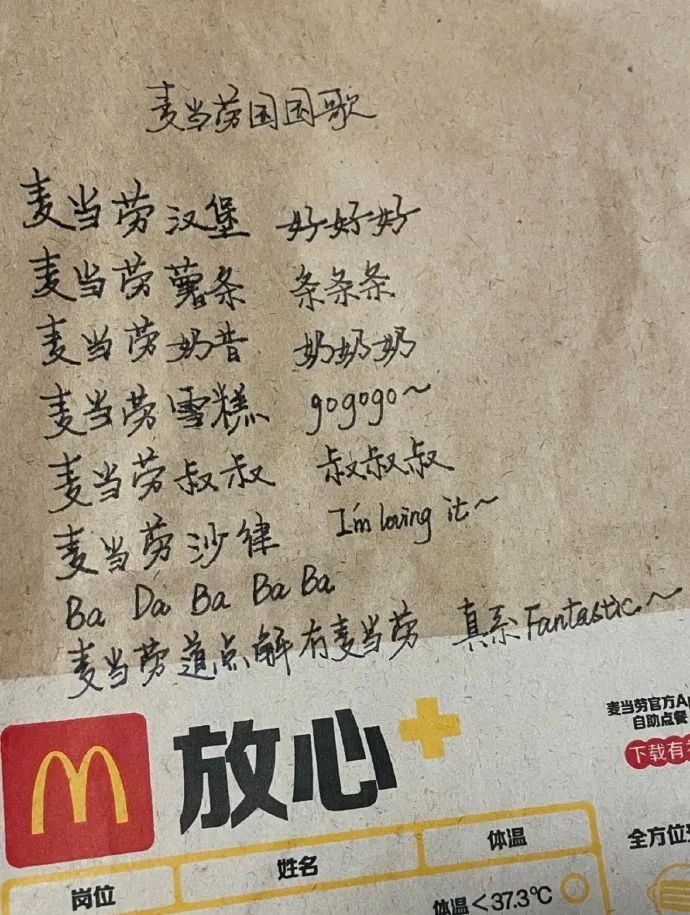 麦当劳国国歌
麦当劳汉堡 好好好
麦当劳薯条 条条条
麦当劳奶昔 奶奶奶
麦当劳雪糕 gogogo~
麦当劳叔叔 叔叔叔
麦当劳沙律 I'm loving it~
Ba Da Ba Ba Ba
麦当劳道点解有麦当劳 真系Fantastic~
麦当劳官方Ap
自助点餐
下载有
M 放心+
全方位
岗位 姓名 体温
体温<37.3℃